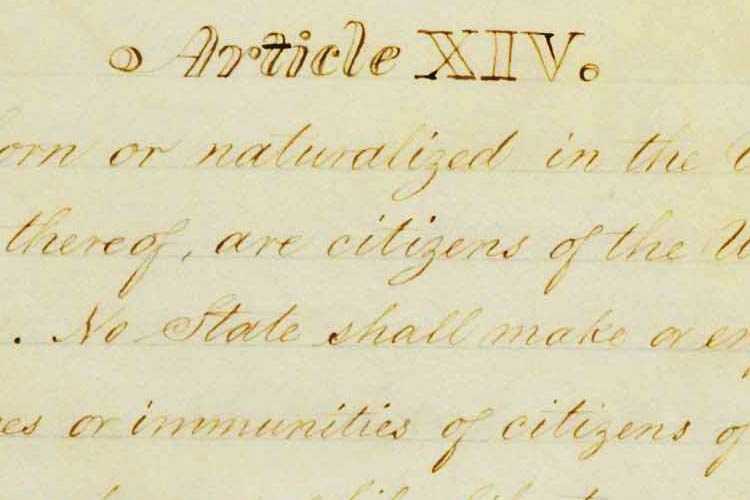 Article XIV.
orn or naturalized in the U
thereof, are citizens of the U
. No State shall make or en
es or immunities of citizens of